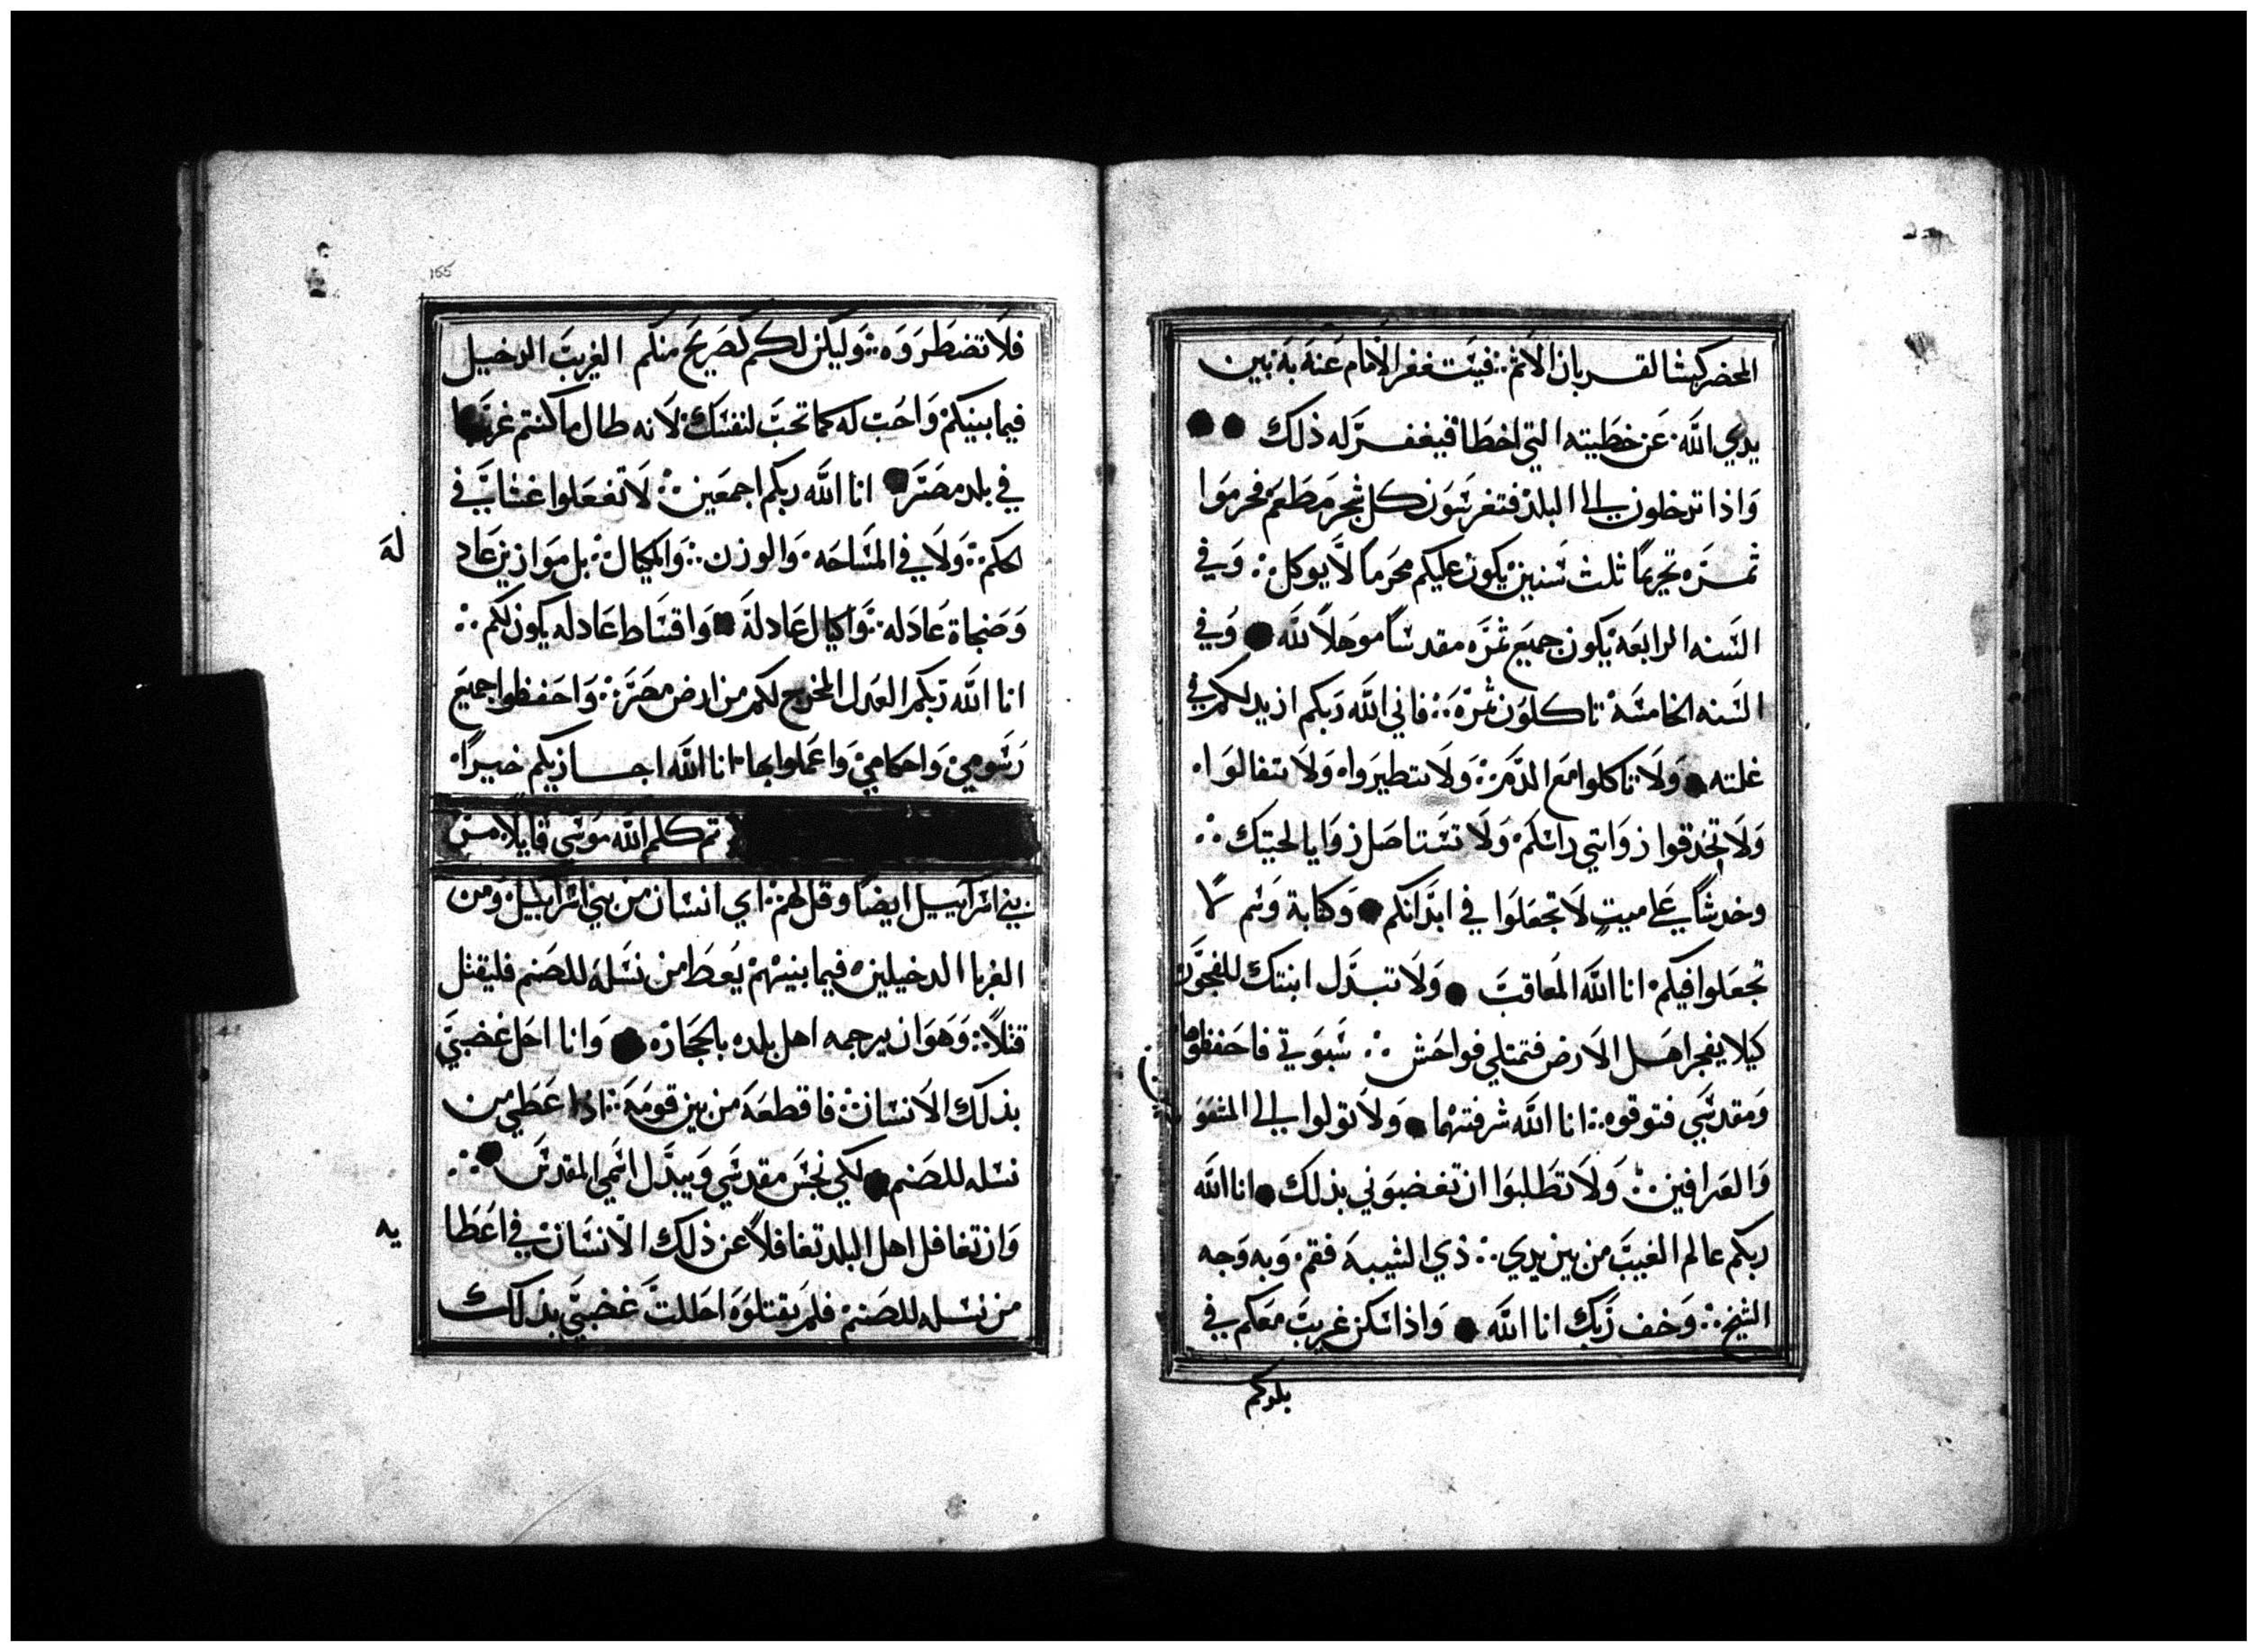 المحضر كبشا لقربان الاثم فيستغفر الامام عنه به بين
يدي الله عن خطيته التي اخطا فيغفر له ذلك
واذا تدخلون الى البلد فتغرسون كل شجر مطعم فحرموا
ثمره تحريمًا ثلث سنين يكون عليكم محرما لا يوكل وفي
السنه الرابعه يكون جميع ثمره مقدسا موحلاً لله وفي
السنه الخامسه تاكلون ثمره فاني الله ربكم ازيد لكم في
غلته ولا تاكلوا مع الدم ولا تتطيروا ولا تتفالوا
ولا تحدقوا زواتي راسكم ولا تستاصل زوايا لحيتك
وخدشًا على ميت لا تجعلوا في ابدانكم وكتابة وشم لا
تجعلوا فيكم انا الله المعاقب ولا تبدل ابنتك للفجور
كيلا يفجر اهل الارض فتمتلي فواحش سبوتي فاحفظوها
ومقدسي فتوقوه انا الله شرفتهما ولا تولوا الى
والعرافين ولا تطلبوا ان تغضبوني بذلك انا الله
ربكم عالم الغيب من بين يدي ذي الشيبه فقم وبه وجه
الشيخ وخف ربك انا الله واذا سكن غريب معكم في
بلدكم
155
فلا تضطروه وليكن لكم كصريح منكم الغريب الدخيل
فيما بينكم واحب له كما تحب لنفسك لانه طال ما كنتم غربا
في بلد مصر انا الله ربكم اجمعين لا تفعلوا غشا في
الحكم ولا في المساحه والوزن والمكيال بل موازين عاد
له
وصنجاة عادله واكيال عادلة واقساط عادله يكون لكم
انا الله ربكم العدل المخرج لكم من ارض مصر واحفظوا جميع
رسومي واحكامي واعملوا بها انا الله اجازيكم خيرًا
تم كلم الله موسى قايلا من
بني اسراييل ايضًا وقل لهم اي انسان من بني اسراييل ومن
الغربا الدخيلين فيما بينهم يعط من نسله للصنم فليقتل
قتلاً وهو ان يرجمه اهل بلده بالحجاره وانا احل غضبي
بذلك الانسان فاقطعه من بين قومه اذا عطي من
نسله للصنم لكي نجس مقدسي ويبدل اسمي المقدس
وان تغافل اهل البلد تغافلاً عن ذلك الانسان في اعطا
يه
من نسله للصنم فلم يقتلوه احللت غضبي بذلك